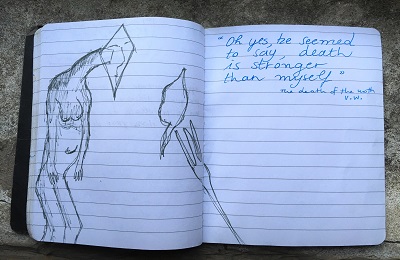 "Oh yes, he seemed
to say, death
is stronger
than myself"
The death of the moth
V.W.